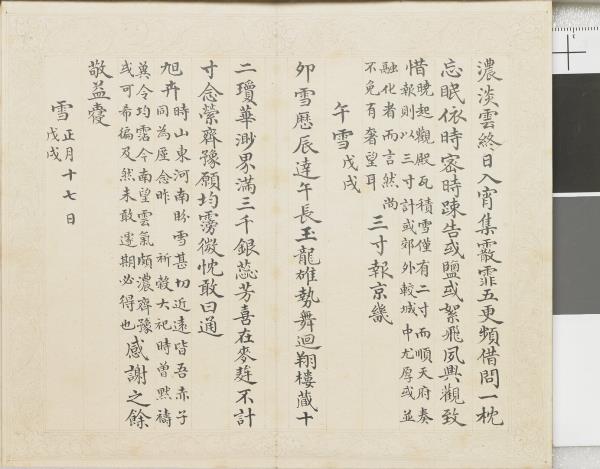 濃淡雲終日入宵集霰霏五更頻借問一枕
忘眠依時密時踈告或鹽或絮飛夙興觀致
惜
晚起觀殿瓦積雪僅有二寸而順天府奏
報則以三寸計或郊外較城中尤厚或並
融化者而言然尚
不免有奢望耳
三寸報京畿
午雪戊戌
夘雪歷辰達午長玉龍雄勢舞迴翔樓蔵十
二瓊華渺界滿三千銀蕊芳喜在麥麰不計
寸念縈齊豫願均霶微忱敢曰通
旭卉
時山東河南盼雪甚切近遠皆吾赤子
同為廑念昨 祈穀大祀時曾黙禱
冀令均霑今南望雲氣頗濃齊豫
或可希徧及然未敢遽期必得也
感謝之餘
敬益
雪
正月十七日
戊戌